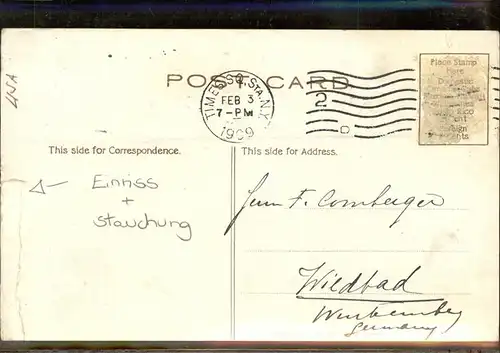 USA
POST CARD
TIMES SQ. STA. N.Y.
FEB 3
7-PM
1909
2
D
Place Stamp
Here
This side for Correspondence.
This side for Address.
Einriss
+
Stauchung
Herrn F. Comberger
Wildbad
Württemberg
Germany